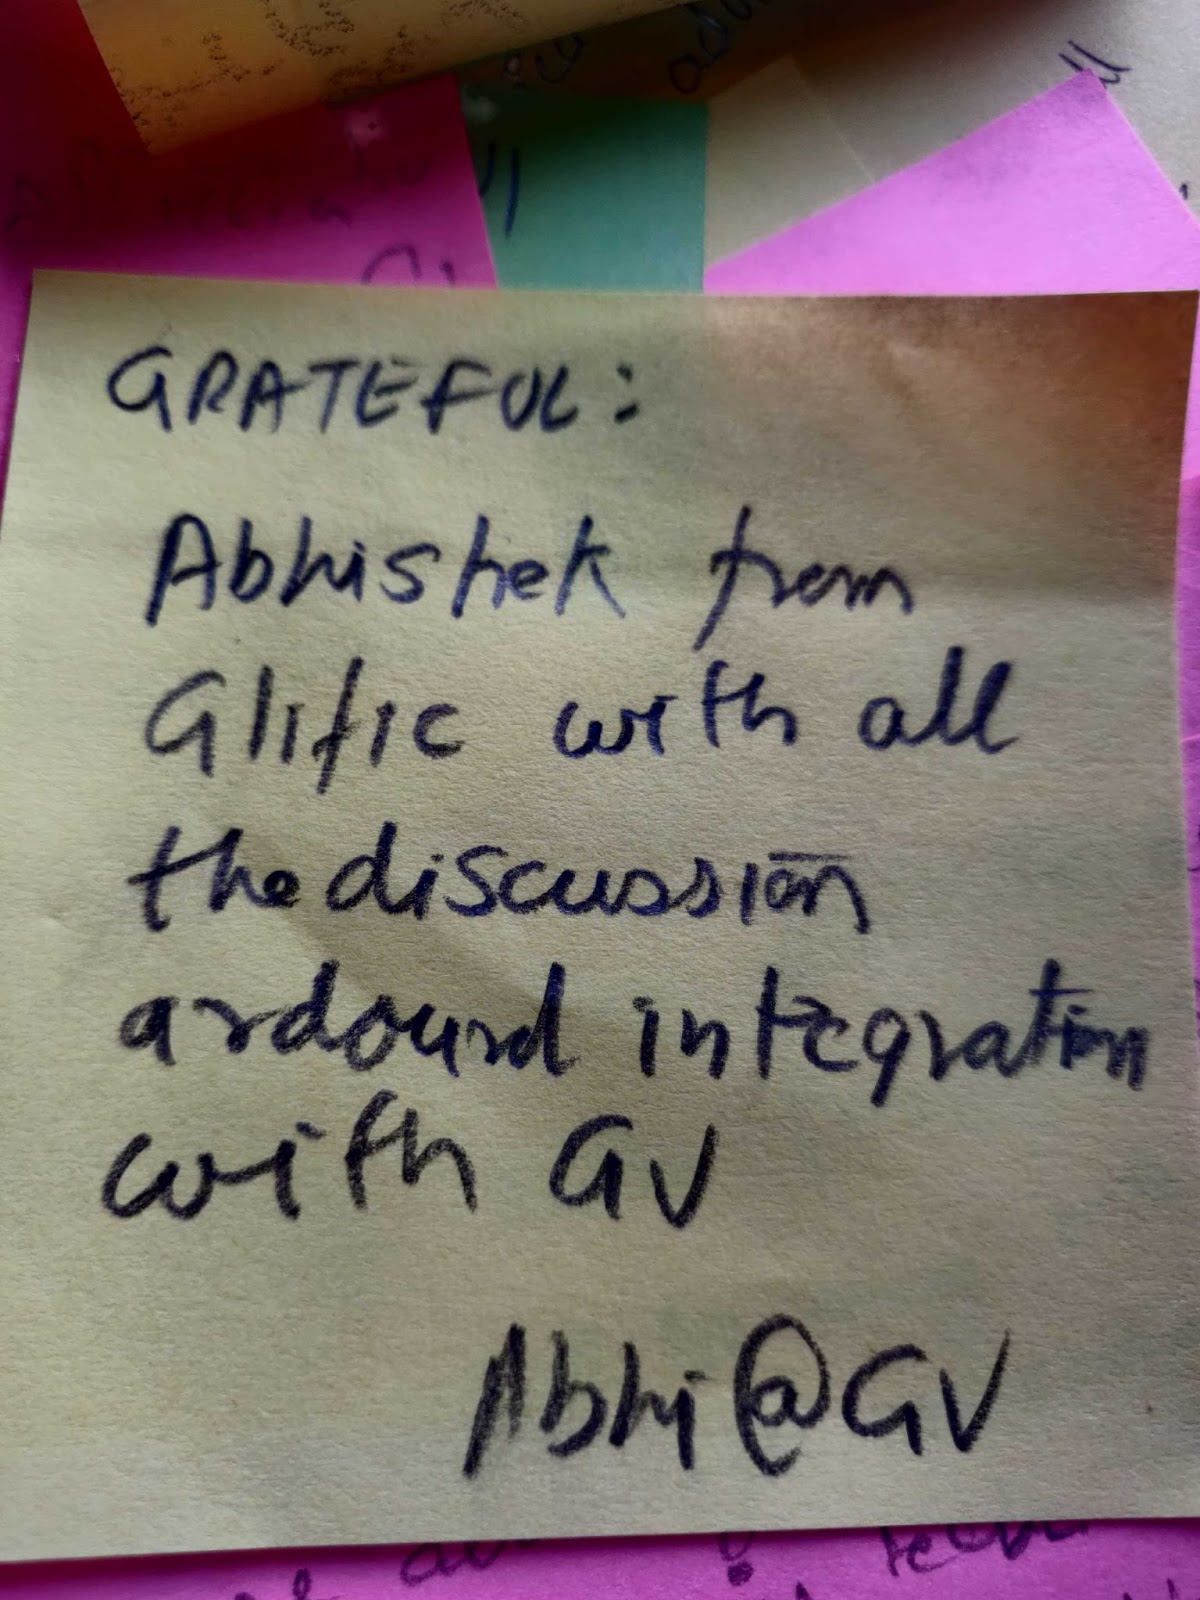 GRATEFUL:
Abhishek from
Glific with all
the discussion
ardound integration
with GV
Abhi@GV